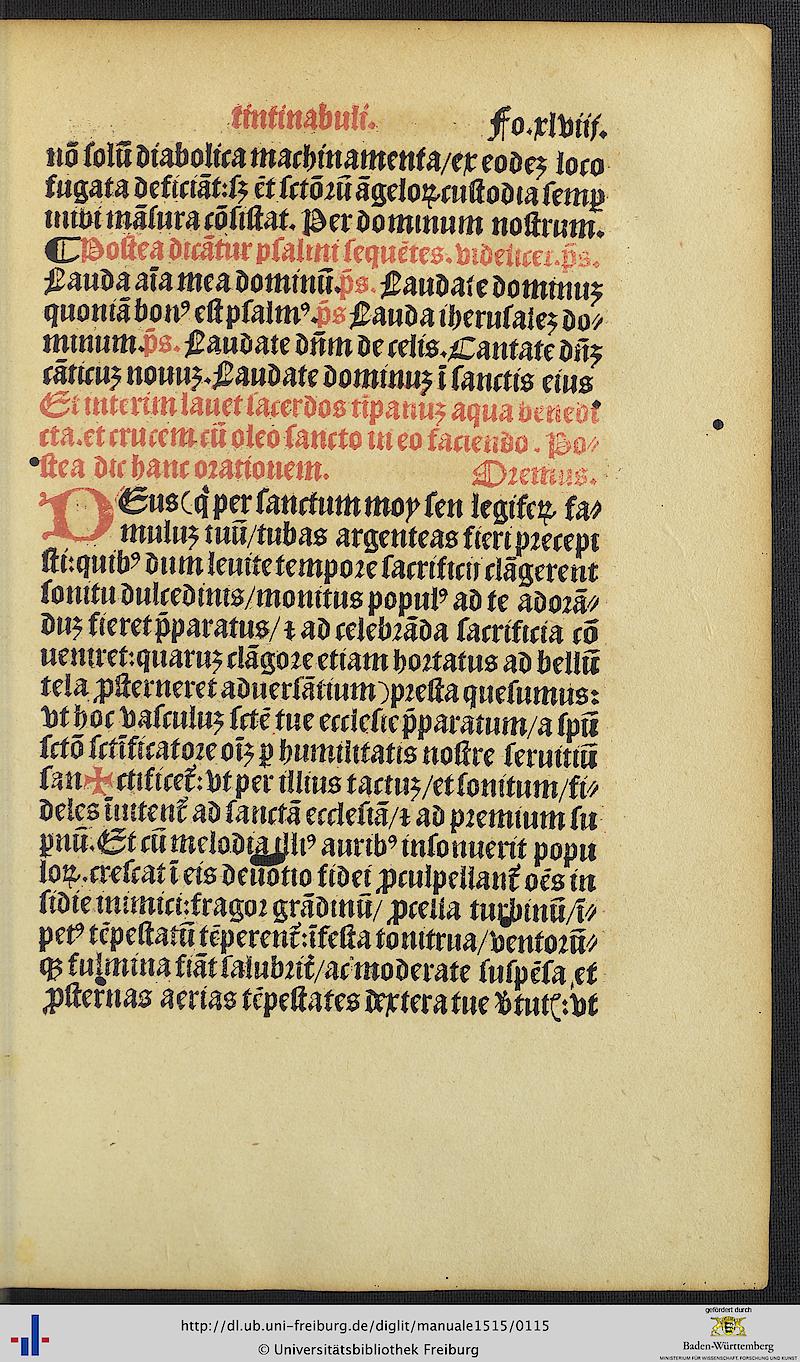 tintinabuli. Fo.xlviij.
nō solū diabolica machinamenta/ex eodeʒ loco
fugata deficiāt:sʒ ēt sctōꝛū āgeloꝝ custodia semꝑ
inibi māsura cōsistat. Per dominum nostrum.
¶Postea dicātur psalmi sequētes. videlicet. p̄s.
Lauda aīa mea dominū.p̄s. Laudate dominuʒ
quoniā bonꝰ est psalmꝰ.p̄s Lauda iherusaleʒ do⸗
minum.p̄s. Laudate dn̄m de celis. Cantate dn̄ʒ
cāticuʒ nouuʒ. Laudate dominuʒ ī sanctis eius
Et interim lauet sacerdos tīpanuʒ aqua benedi
cta.et crucem cū oleo sancto in eo faciendo. Po⸗
stea dic hanc orationem. Oremus.
DEus (q̄ per sanctum moy sen legiferꝝ fa⸗
muluʒ tuū/tubas argenteas fieri precepi
sti:quibꝰ dum leuite tempore sacrificij clāgerent
sonitu dulcedinis/monitus populꝰ ad te adorā⸗
duʒ fieret p̄paratus/⁊ ad celebrāda sacrificia cō
ueniret:quaruʒ clāgore etiam hortatus ad bellū
tela ꝓsterneret aduersātium) presta quesumus:
vt hoc vasculuʒ sctē tue ecclesie p̄paratum/a spū
sctō sctīficatore oīʒ ꝑ humilitatis nostre seruitiū
san✠ctificet᷑: vt per illius tactuʒ/et sonitum/fi⸗
deles īuitent᷑ ad sanctā ecclesiā/⁊ ad premium su
pnū. Et cū melodia illiꝰ auribꝰ insonuerit popu
loꝝ.crescat ī eis deuotio fidei ꝓculpellant᷑ oēs in
sidie inimici:fragor grādinū/ ꝓcella turbinū/ī⸗
petꝰ tēpestatū tēperent᷑:īfesta tonitrua/ventorū⸗
qꝫ fulmina fiāt salubrit᷑/ac moderate suspēsa,et
ꝓsternas aerias tēpestates dextera tue v̓tutꝭ:vt
http://dl.ub.uni-freiburg.de/diglit/manuale1515/0115
© Universitätsbibliothek Freiburg
gefördert durch
Baden-Württemberg
MINISTERIUM FÜR WISSENSCHAFT, FORSCHUNG UND KUNST